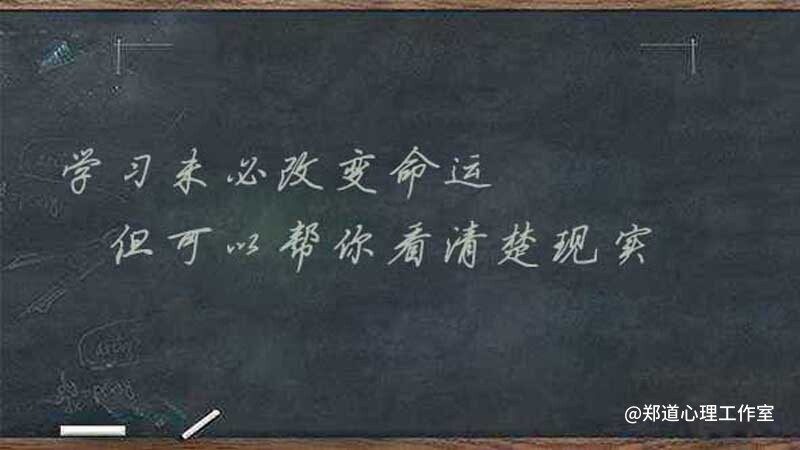 学习未必改变命运
但可以帮你看清楚现实
@郑道心理工作室